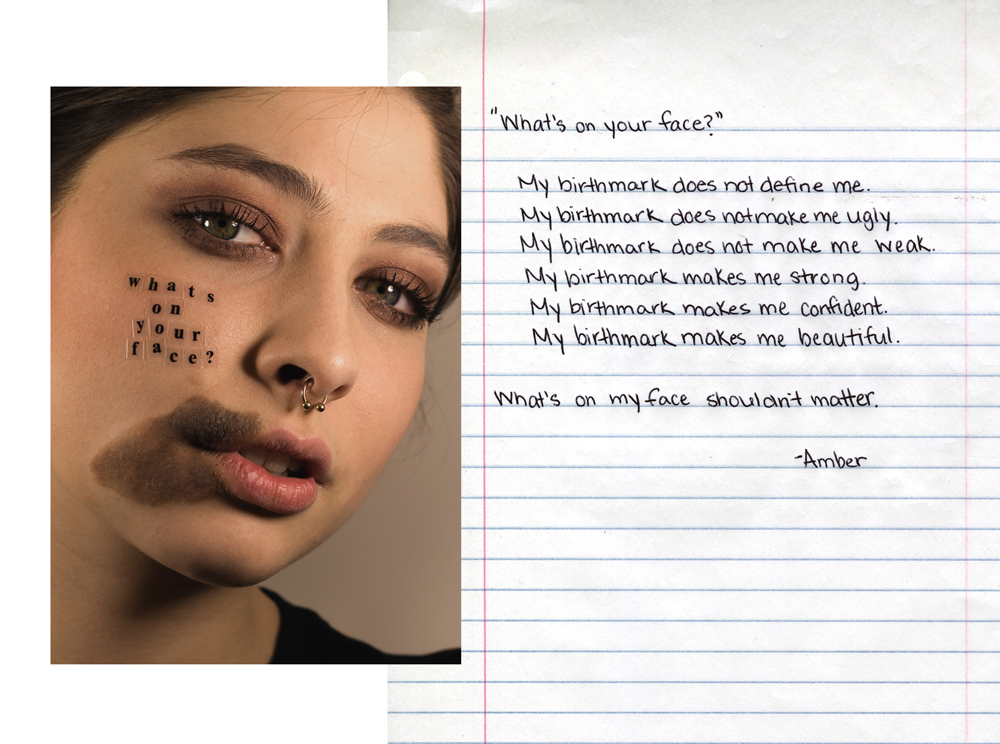 whats
on
your
face?
"What's on your face?"
My birthmark does not define me.
My birthmark does not make me ugly.
My birthmark does not make me weak.
My birthmark makes me strong.
My birthmark makes me confident.
My birthmark makes me beautiful.
What's on my face shouldn't matter.
-Amber